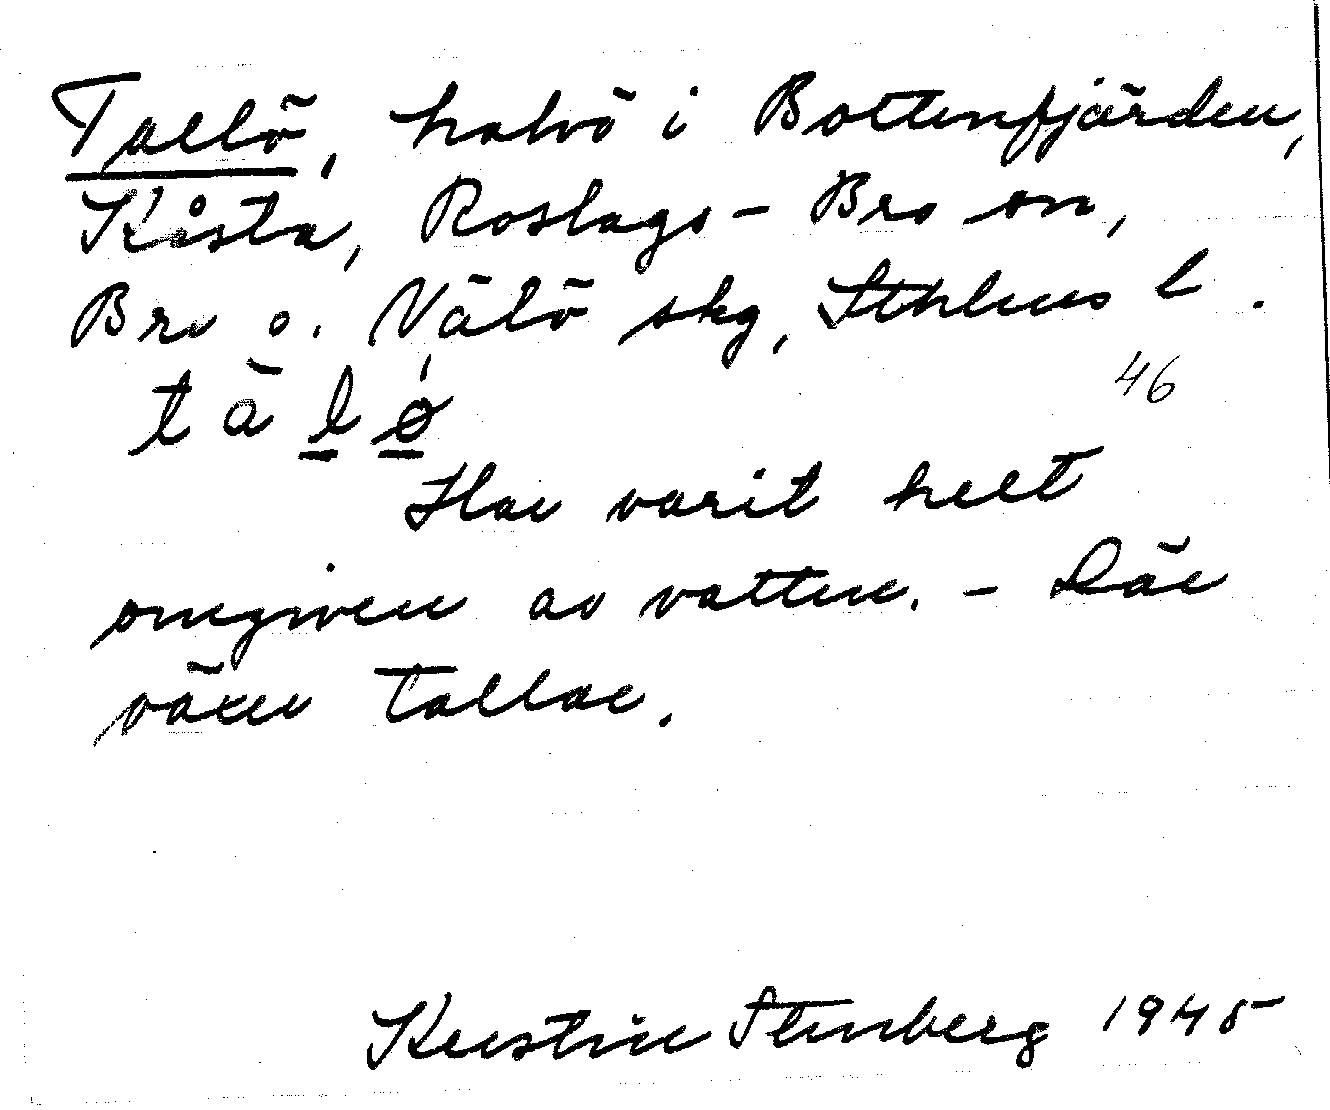 Tallö, halvö i Bottenfjärden,
Kåsta, Roslags-Bro sn,
Bro o. Vätö skg, Sthlms l.
46
Har varit helt
omgiven av vatten. - Där
växer tallar.
Kerstin Stenberg 1945